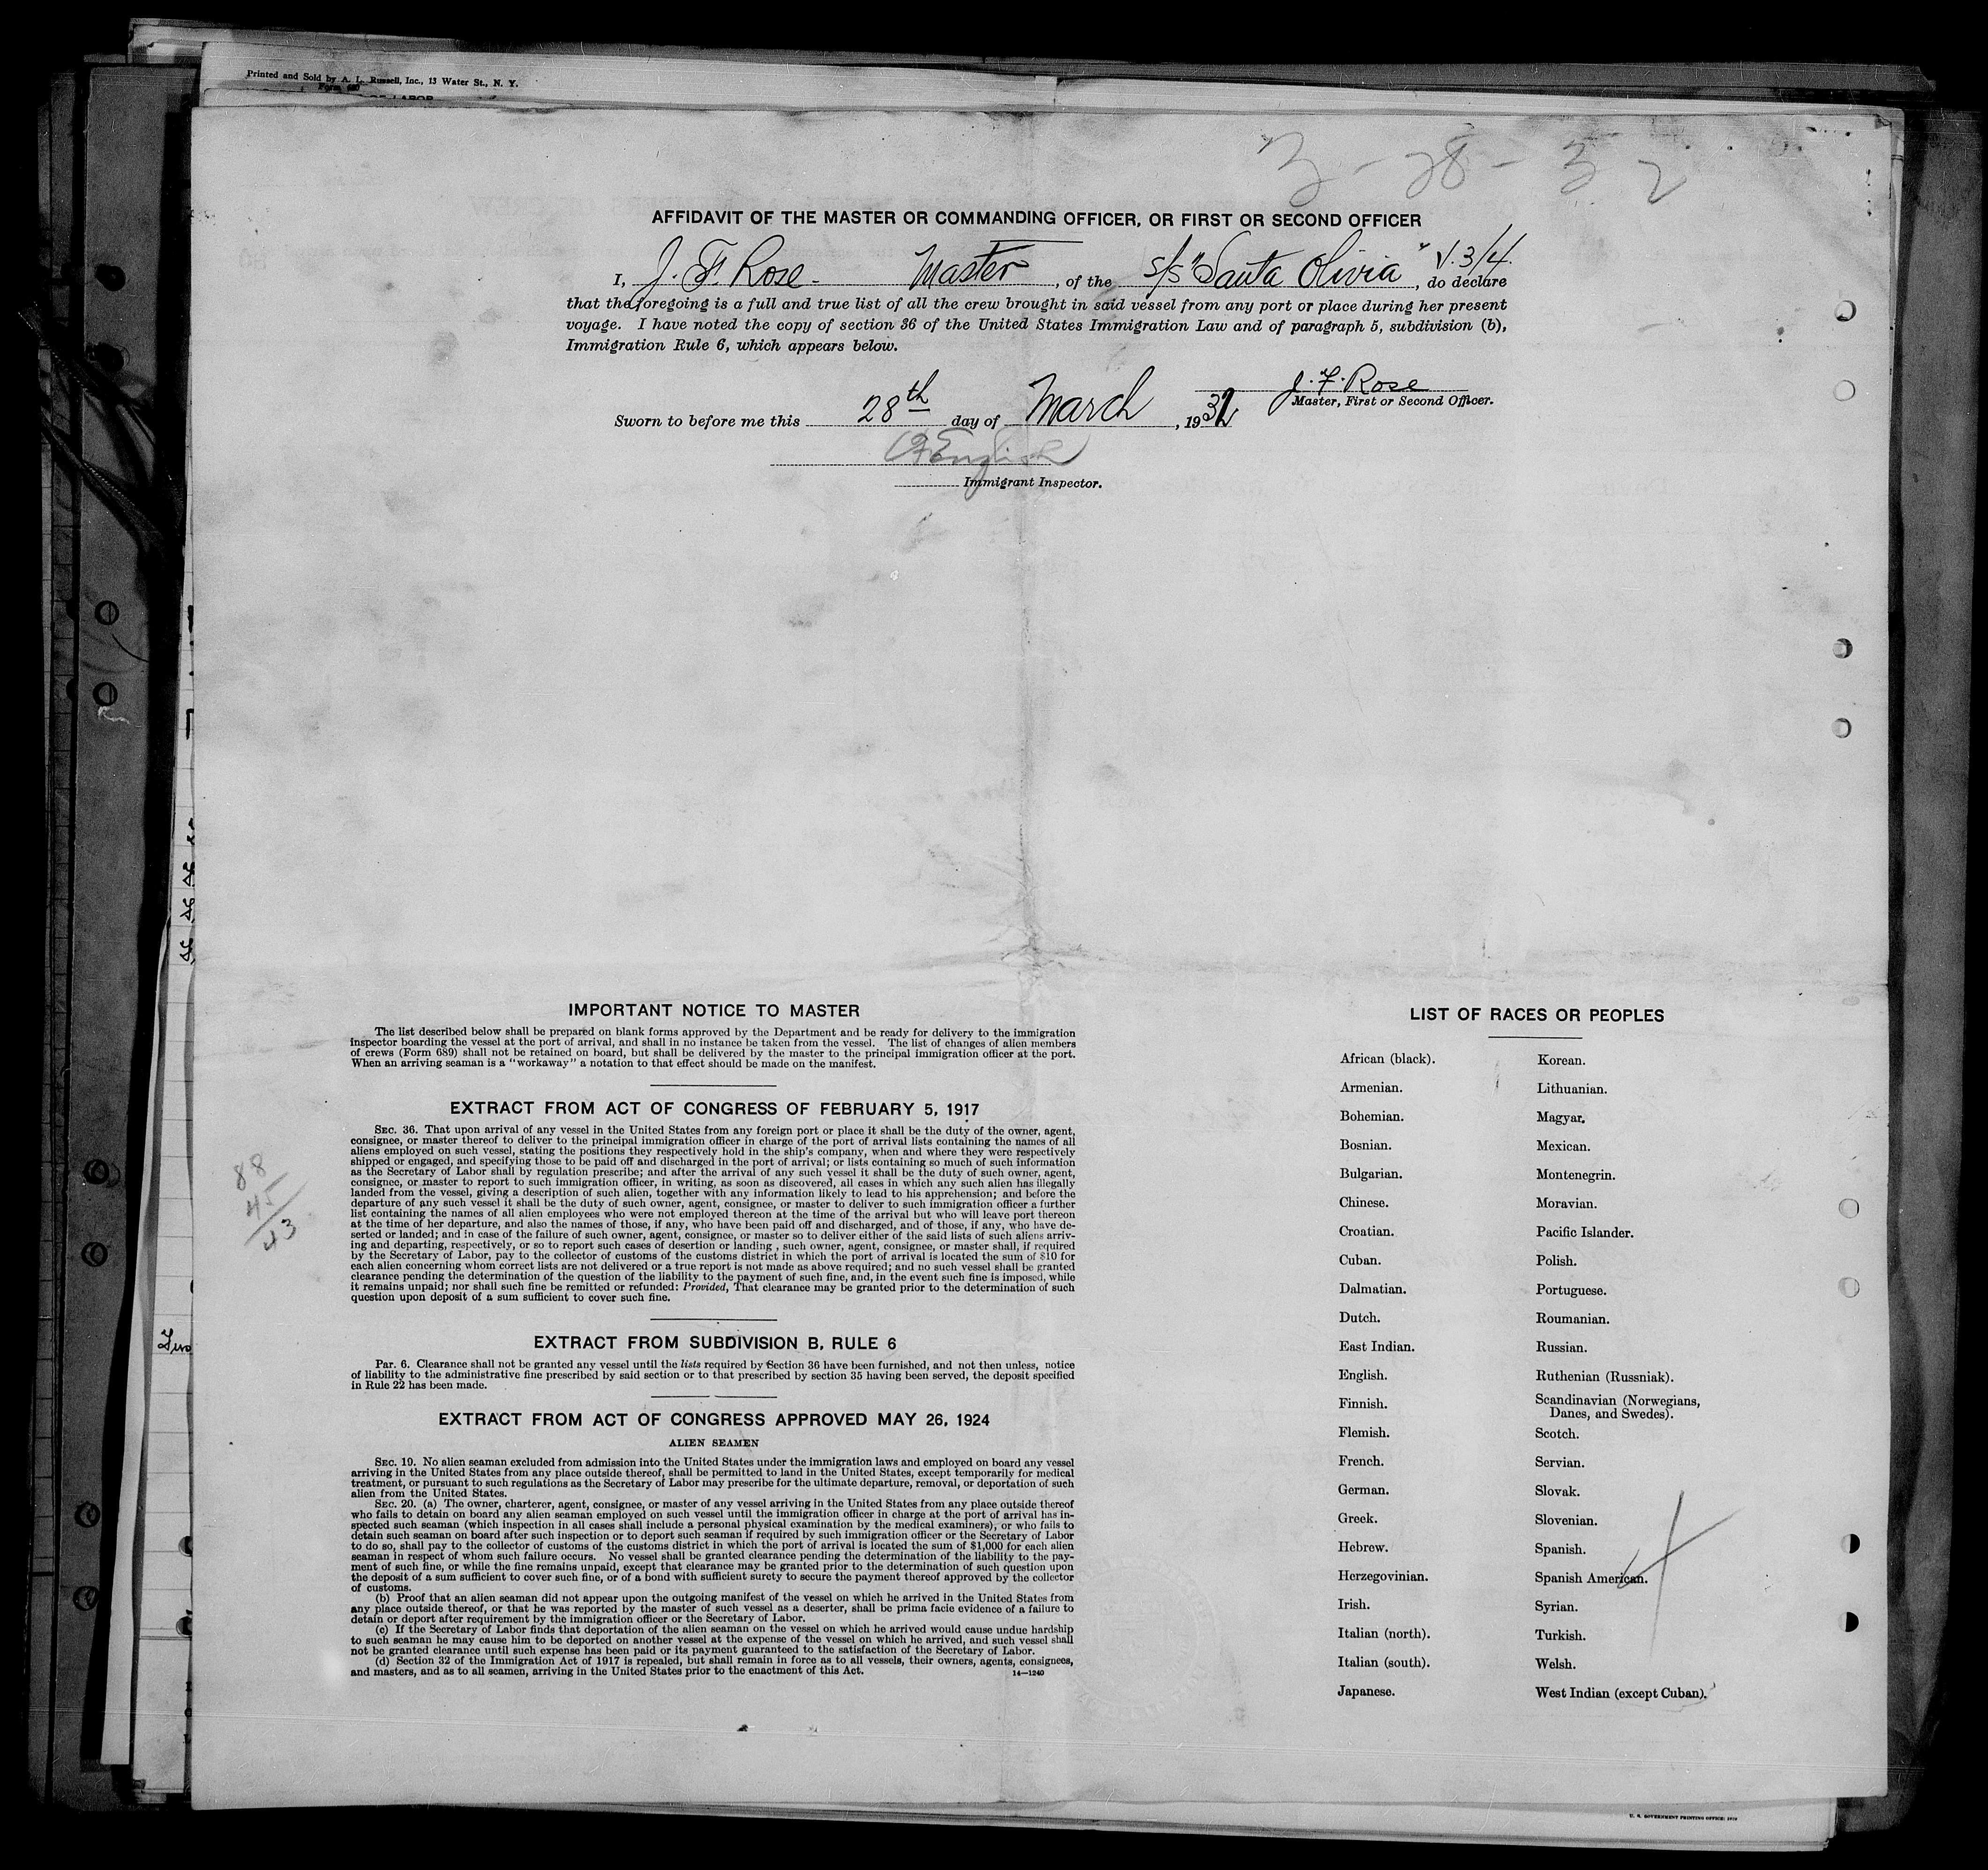 Printed and Sold by A. L. Russell, Inc., 13 Water St., N. Y.
3-28-32
AFFIDAVIT OF THE MASTER OR COMMANDING OFFICER, OR FIRST OR SECOND OFFICER
I, J. F. Rose - Master, of the s/s "Santa Olivia" V. 34., do declare
that the foregoing is a full and true list of all the crew brought in said vessel from any port or place during her present
voyage. I have noted the copy of section 36 of the United States Immigration Law and of paragraph 5, subdivision (b),
Immigration Rule 6, which appears below.
J. F. Rose
Master, First or Second Officer.
Sworn to before me this 28th day of March, 1932
English
Immigrant Inspector.
IMPORTANT NOTICE TO MASTER
The list described below shall be prepared on blank forms approved by the Department and be ready for delivery to the immigration
inspector boarding the vessel at the port of arrival, and shall in no instance be taken from the vessel. The list of changes of alien members
of crews (Form 689) shall not be retained on board, but shall be delivered by the master to the principal immigration officer at the port.
When an arriving seaman is a "workaway" a notation to that effect should be made on the manifest.
EXTRACT FROM ACT OF CONGRESS OF FEBRUARY 5, 1917
SEC. 36. That upon arrival of any vessel in the United States from any foreign port or place it shall be the duty of the owner, agent,
consignee, or master thereof to deliver to the principal immigration officer in charge of the port of arrival lists containing the names of all
aliens employed on such vessel, stating the positions they respectively hold in the ship's company, when and where they were respectively
shipped or engaged, and specifying those to be paid off and discharged in the port of arrival; or lists containing so much of such information
as the Secretary of Labor shall by regulation prescribe; and after the arrival of any such vessel it shall be the duty of such owner, agent,
consignee, or master to report to such immigration officer, in writing, as soon as discovered, all cases in which any such alien has illegally
landed from the vessel, giving a description of such alien, together with any information likely to lead to his apprehension; and before the
departure of any such vessel it shall be the duty of such owner, agent, consignee, or master to deliver to such immigration officer a further
list containing the names of all alien employees who were not employed thereon at the time of the arrival but who will leave port thereon
at the time of her departure, and also the names of those, if any, who have been paid off and discharged, and of those, if any, who have de-
serted or landed; and in case of the failure of such owner, agent, consignee, or master so to deliver either of the said lists of such aliens arriv-
ing and departing, respectively, or so to report such cases of desertion or landing , such owner, agent, consignee, or master shall, if required
by the Secretary of Labor, pay to the collector of customs of the customs district in which the port of arrival is located the sum of $10 for
each alien concerning whom correct lists are not delivered or a true report is not made as above required; and no such vessel shall be granted
clearance pending the determination of the question of the liability to the payment of such fine, and, in the event such fine is imposed, while
it remains unpaid; nor shall such fine be remitted or refunded: Provided, That clearance may be granted prior to the determination of such
question upon deposit of a sum sufficient to cover such fine.
88
45
43
EXTRACT FROM SUBDIVISION B, RULE 6
Par. 6. Clearance shall not be granted any vessel until the lists required by Section 36 have been furnished, and not then unless, notice
of liability to the administrative fine prescribed by said section or to that prescribed by section 35 having been served, the deposit specified
in Rule 22 has been made.
EXTRACT FROM ACT OF CONGRESS APPROVED MAY 26, 1924
ALIEN SEAMEN
SEC. 19. No alien seaman excluded from admission into the United States under the immigration laws and employed on board any vessel
arriving in the United States from any place outside thereof, shall be permitted to land in the United States, except temporarily for medical
treatment, or pursuant to such regulations as the Secretary of Labor may prescribe for the ultimate departure, removal, or deportation of such
alien from the United States.
SEC. 20. (a) The owner, charterer, agent, consignee, or master of any vessel arriving in the United States from any place outside thereof
who fails to detain on board any alien seaman employed on such vessel until the immigration officer in charge at the port of arrival has in-
spected such seaman (which inspection in all cases shall include a personal physical examination by the medical examiners), or who fails to
detain such seaman on board after such inspection or to deport such seaman if required by such immigration officer or the Secretary of Labor
to do so, shall pay to the collector of customs of the customs district in which the port of arrival is located the sum of $1,000 for each alien
seaman in respect of whom such failure occurs. No vessel shall be granted clearance pending the determination of the liability to the pay-
ment of such fine, or while the fine remains unpaid, except that clearance may be granted prior to the determination of such question upon
the deposit of a sum sufficient to cover such fine, or of a bond with sufficient surety to secure the payment thereof approved by the collector
of customs.
(b) Proof that an alien seaman did not appear upon the outgoing manifest of the vessel on which he arrived in the United States from
any place outside thereof, or that he was reported by the master of such vessel as a deserter, shall be prima facie evidence of a failure to
detain or deport after requirement by the immigration officer or the Secretary of Labor.
(c) If the Secretary of Labor finds that deportation of the alien seaman on the vessel on which he arrived would cause undue hardship
to such seaman he may cause him to be deported on another vessel at the expense of the vessel on which he arrived, and such vessel shall
not be granted clearance until such expense has been paid or its payment guaranteed to the satisfaction of the Secretary of Labor.
(d) Section 32 of the Immigration Act of 1917 is repealed, but shall remain in force as to all vessels, their owners, agents, consignees,
and masters, and as to all seamen, arriving in the United States prior to the enactment of this Act.
14—1240
LIST OF RACES OR PEOPLES
African (black).
Armenian.
Bohemian.
Bosnian.
Bulgarian.
Chinese.
Croatian.
Cuban.
Dalmatian.
Dutch.
East Indian.
English.
Finnish.
Flemish.
French.
German.
Greek.
Hebrew.
Herzegovinian.
Irish.
Italian (north).
Italian (south).
Japanese.
Korean.
Lithuanian.
Magyar.
Mexican.
Montenegrin.
Moravian.
Pacific Islander.
Polish.
Portuguese.
Roumanian.
Russian.
Ruthenian (Russniak).
Scandinavian (Norwegians,
Danes, and Swedes).
Scotch.
Servian.
Slovak.
Slovenian.
Spanish.
Spanish American.
Syrian.
Turkish.
Welsh.
West Indian (except Cuban).